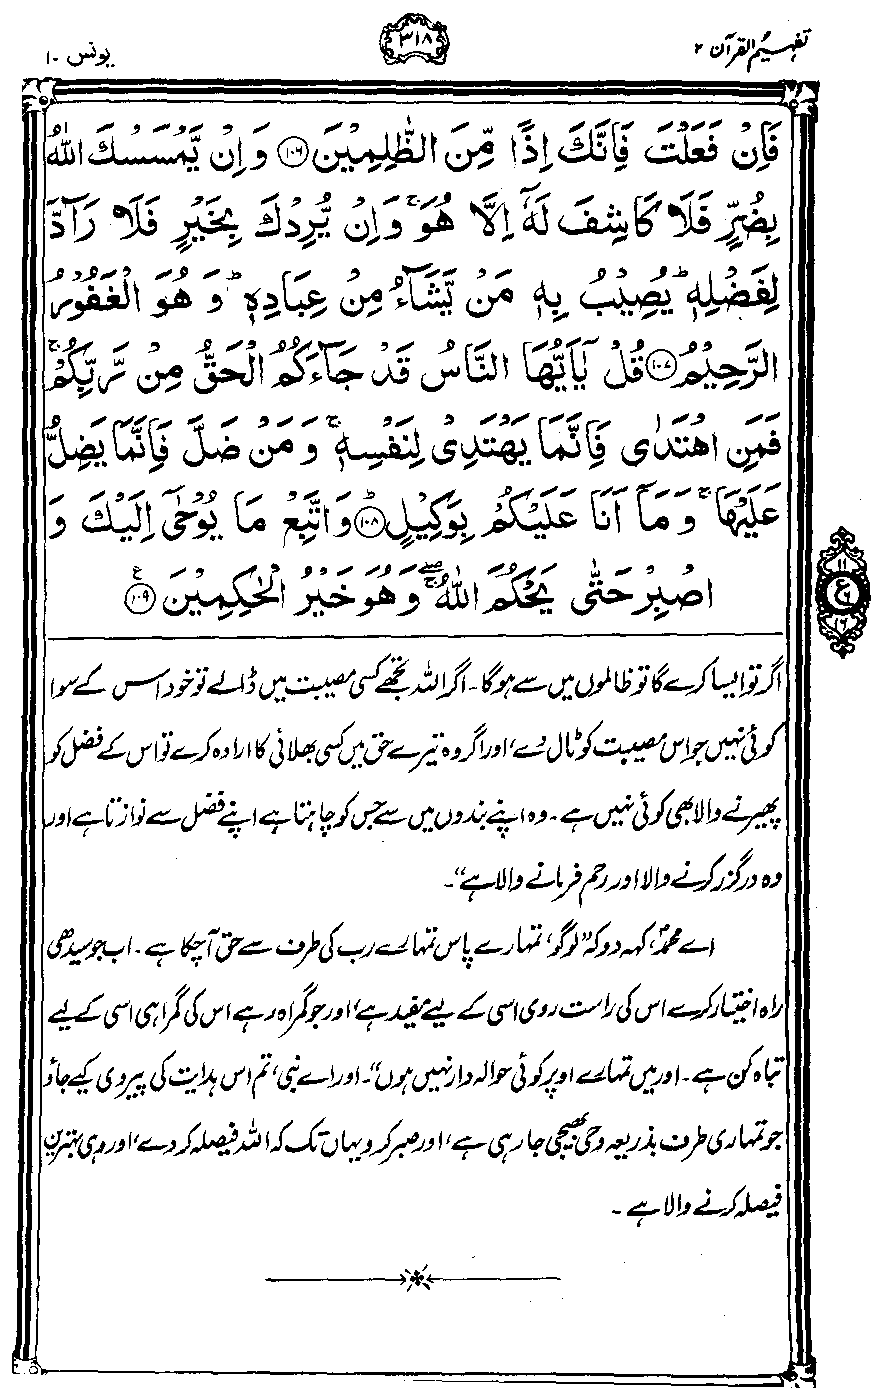 تفہیم القرآن ۲
۳۱۸
یونس ۱۰
فَاِنْ فَعَلْتَ فَاِنَّكَ اِذًا مِّنَ الظّٰلِمِيْنَ ﴿۱۰۶﴾ وَاِنْ يَّمْسَسْكَ اللّٰهُ
بِضُرٍّ فَلَا كَاشِفَ لَهٗۤ اِلَّا هُوَ ۚ وَاِنْ يُّرِدْكَ بِخَيْرٍ فَلَا رَآدَّ
لِفَضْلِهٖ ؕ يُصِيْبُ بِهٖ مَنْ يَّشَآءُ مِنْ عِبَادِهٖ ؕ وَهُوَ الْغَفُوْرُ
الرَّحِيْمُ ﴿۱۰۷﴾ قُلْ يٰۤاَيُّهَا النَّاسُ قَدْ جَآءَكُمُ الْحَقُّ مِنْ رَّبِّكُمْ ۚ
فَمَنِ اهْتَدٰى فَاِنَّمَا يَهْتَدِىْ لِنَفْسِهٖ ۚ وَمَنْ ضَلَّ فَاِنَّمَا يَضِلُّ
عَلَيْهَا ۚ وَمَاۤ اَنَا عَلَيْكُمْ بِوَكِيْلٍ ؕ ﴿۱۰۸﴾ وَاتَّبِعْ مَا يُوْحٰۤى اِلَيْكَ وَ
اصْبِرْ حَتّٰى يَحْكُمَ اللّٰهُ ۖۚ وَهُوَ خَيْرُ الْحٰكِمِيْنَ ﴿۱۰۹﴾ ع
۱۱
ع
۶
۱۶
اگر تو ایسا کرے گا تو ظالموں میں سے ہوگا۔ اگر اللہ تجھے کسی مصیبت میں ڈالے تو خود اس کے سوا
کوئی نہیں جو اس مصیبت کو ٹال دے، اور اگر وہ تیرے حق میں کسی بھلائی کا ارادہ کرے تو اس کے فضل کو
پھیرنے والا بھی کوئی نہیں ہے۔ وہ اپنے بندوں میں سے جس کو چاہتا ہے اپنے فضل سے نوازتا ہے اور
وہ درگزر کرنے والا اور رحم فرمانے والا ہے“۔
اے محمدؐ، کہہ دو کہ ”لوگو، تمہارے پاس تمہارے رب کی طرف سے حق آچکا ہے۔ اب جو سیدھی
راہ اختیار کرے اس کی راست روی اسی کے لیے مفید ہے، اور جو گمراہ رہے اس کی گمراہی اسی کے لیے
تباہ کن ہے۔ اور میں تمہارے اوپر کوئی حوالہ دار نہیں ہوں“۔ اور اے نبی، تم اس ہدایت کی پیروی کیے جاؤ
جو تمہاری طرف بذریعہ وحی بھیجی جا رہی ہے، اور صبر کرو یہاں تک کہ اللہ فیصلہ کردے، اور وہی بہترین
فیصلہ کرنے والا ہے۔